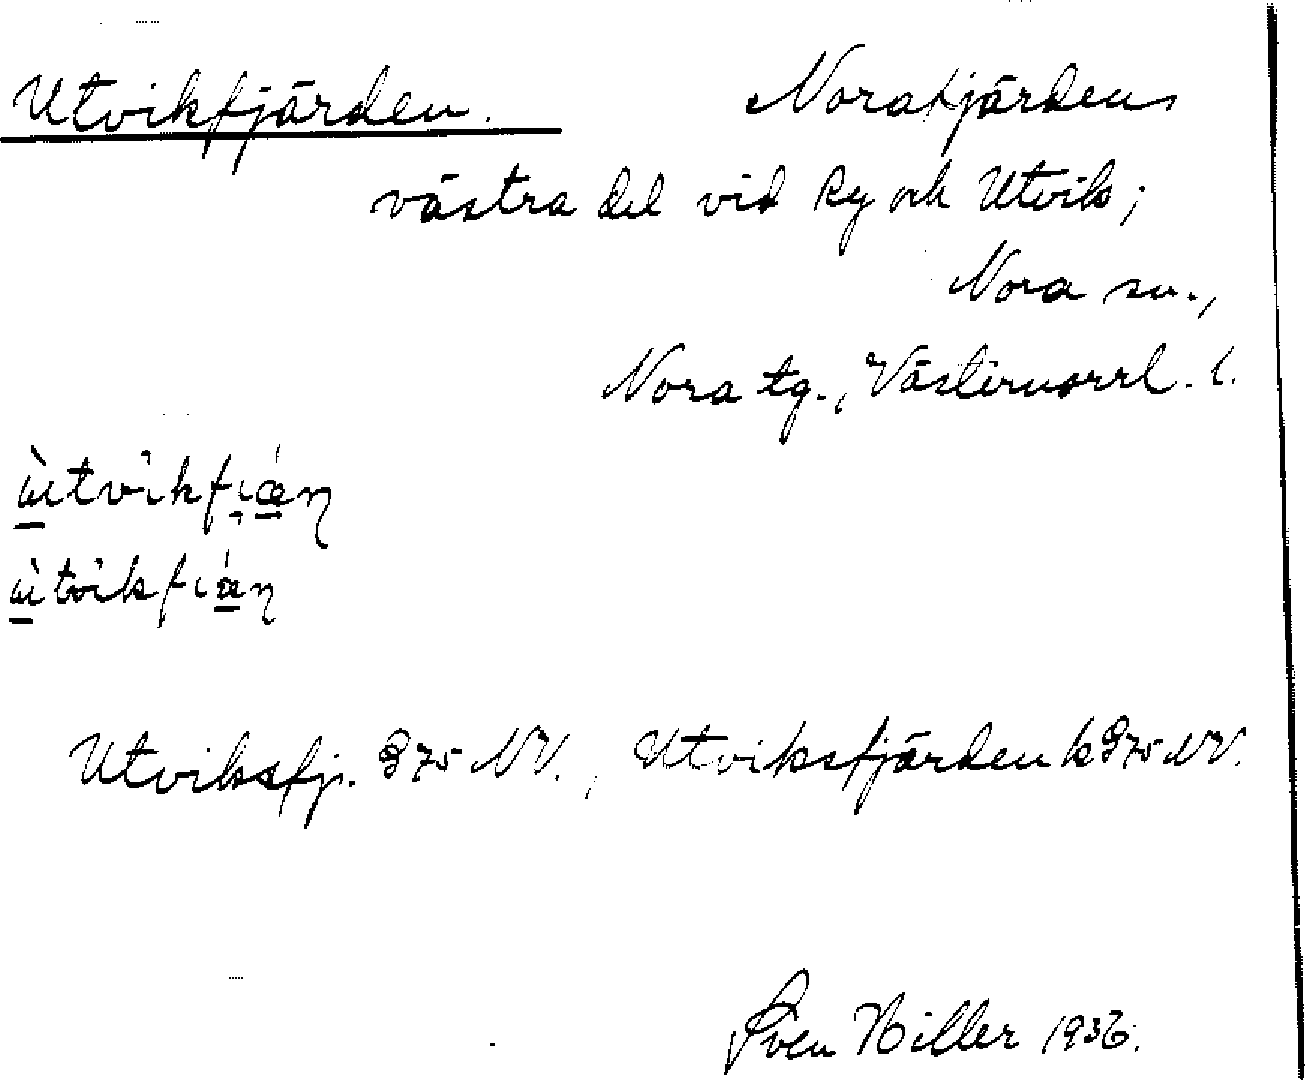 Utvikfjärden. Norafjärdens
västra del vid Ry och Utvik;
Nora sn.,
Nora tg., Västernorrl. l.
ùtvikfi̯æ´ṇ
ùtvikfiæ´ṇ
Utviksfj. 375 NV., Utviksfjärden k 975 NV.
Sven Hiller 1936.